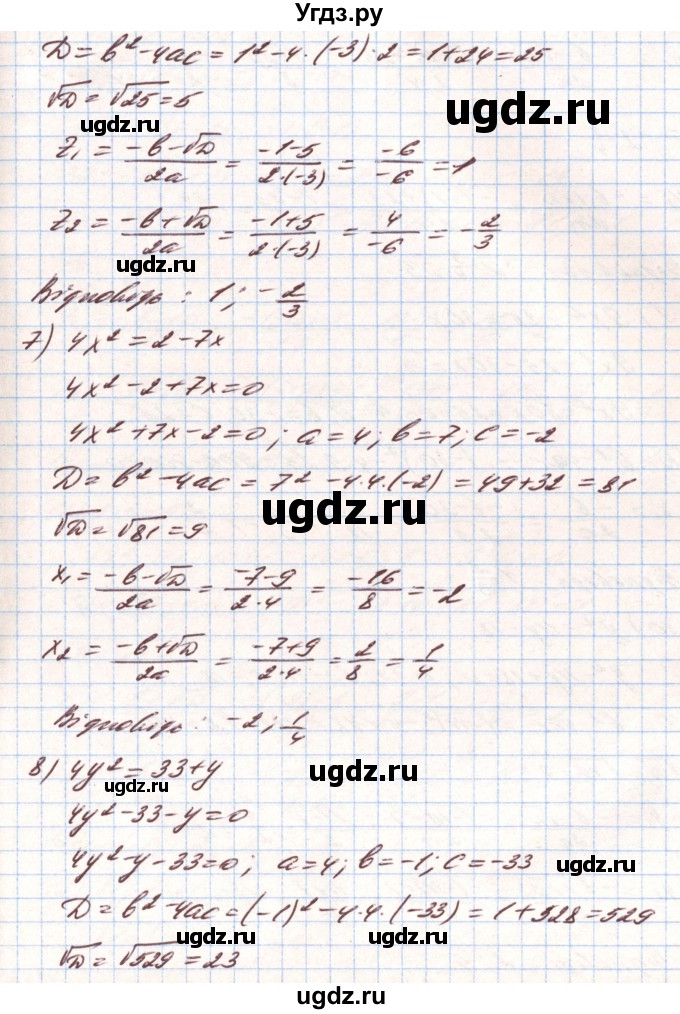 Угдз.ру
D = b² - 4ac = 1² - 4·(-3)·2 = 1 + 24 = 25
√D = √25 = 5
ugdz.ru
ugdz.ru
z₁ = (-b - √D)/2a = (-1-5)/(2·(-3)) = -6/-6 = 1
z₂ = (-b + √D)/2a = (-1+5)/(2·(-3)) = 4/-6 = -2/3
ugdz.ru
ugdz.ru
Відповідь: 1; -2/3
7) 4x² = 2 - 7x
4x² - 2 + 7x = 0
4x² + 7x - 2 = 0; a = 4; b = 7; c = -2
D = b² - 4ac = 7² - 4·4·(-2) = 49 + 32 = 81
ugdz.ru
√D = √81 = 9
x₁ = (-b - √D)/2a = (-7-9)/(2·4) = -16/8 = -2
x₂ = (-b + √D)/2a = (-7+9)/(2·4) = 2/8 = 1/4
Відповідь: -2; 1/4
8) 4y² = 33 + y
ugdz.ru
ugdz.ru
4y² - 33 - y = 0
4y² - y - 33 = 0; a = 4; b = -1; c = -33
ugdz.ru
D = b² - 4ac = (-1)² - 4·4·(-33) = 1 + 528 = 529
ugdz.ru
ugdz.ru
√D = √529 = 23
ugdz.ru